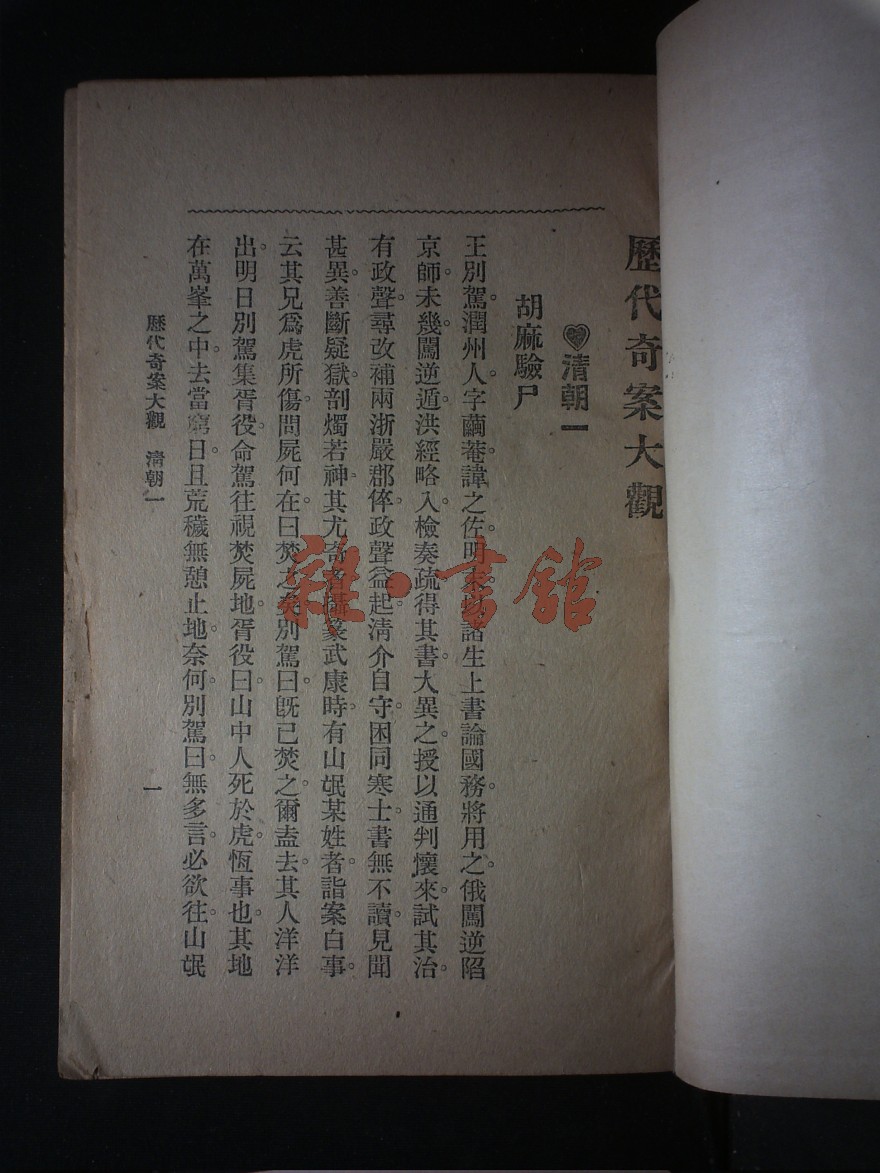 歷代奇案大觀
清朝一
胡麻驗尸
王別駕。潤州人。字藺菴。諱之佐。明末以諸生上書論國務。將用之。俄闖逆陷
京師。未幾。闖逆遁。洪經略入。檢奏疏得其書。大異之。授以通判。懷來試其治。
有政聲。尋改補兩浙嚴郡倅。政聲益起。清介自守。困同寒士。書無不讀。見聞
甚異。善斷疑獄。剖燭若神。其尤奇者。攝篆武康時。有山氓某姓者。詣案白事。
云其兄爲虎所傷。問屍何在。曰焚之矣。別駕曰。既已焚之。爾盍去。其人洋洋
出。明日別駕集胥役。命駕往視焚屍地。胥役曰。山中人死於虎。恆事也。其地
在萬峯之中。去當窮日。且荒穢無憩止地。奈何。別駕曰。無多言。必欲往。山氓
歷代奇案大觀 清朝一
一
雜·書館